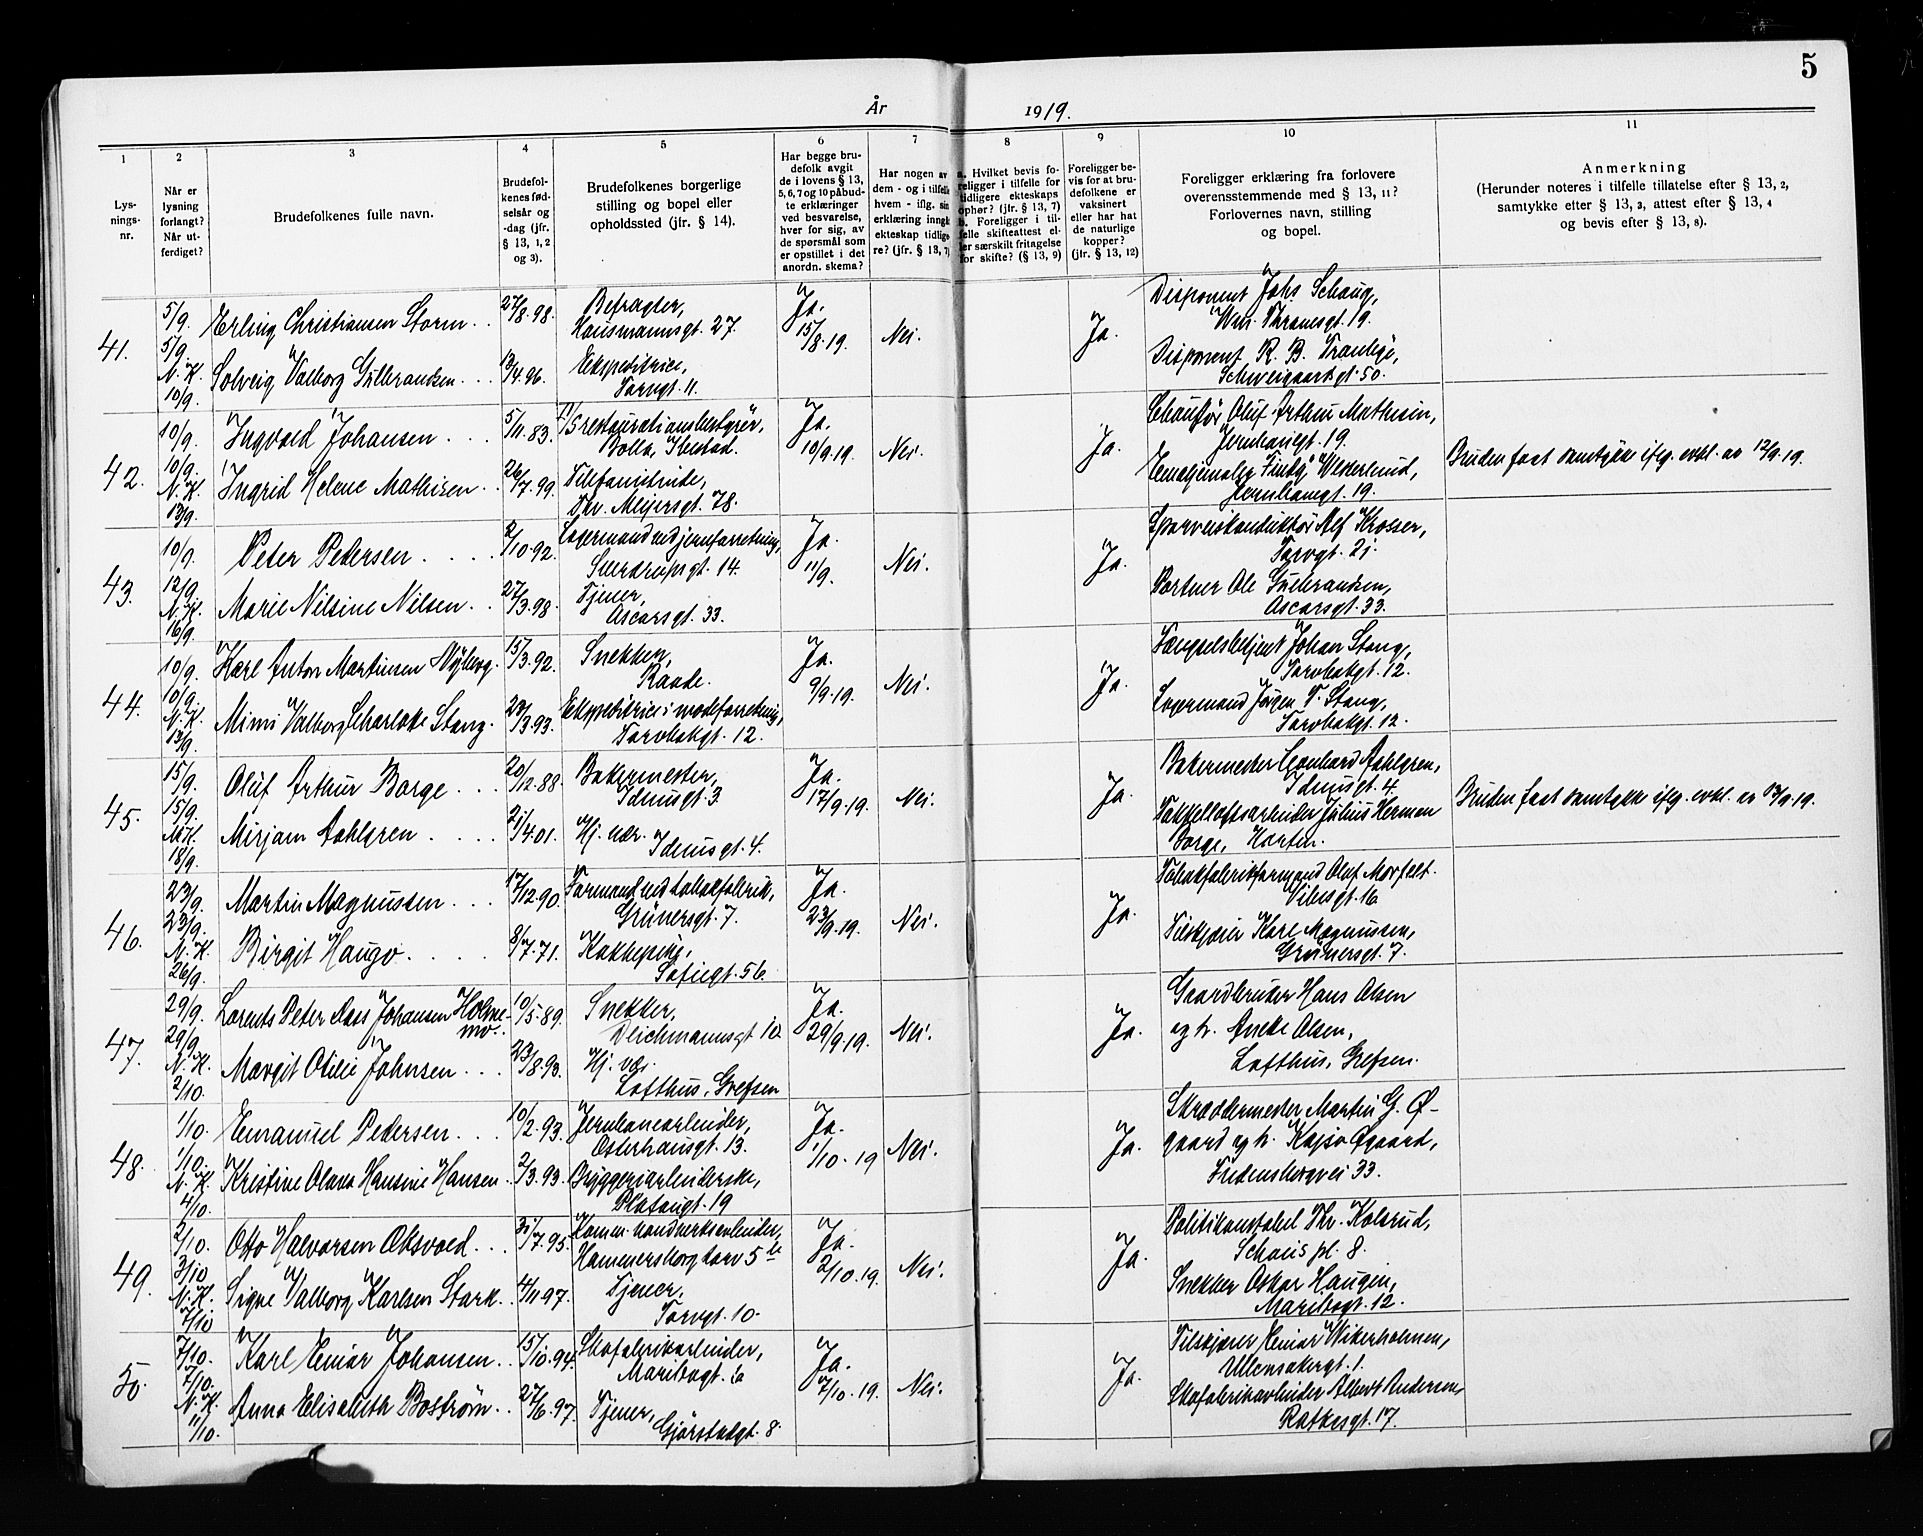 5
År 1919.
1 2 3 4 5 6 7 8 9 10 11
Lys-
nings-
nr.
Når er
lysning
forlangt?
Når ut-
ferdiget?
Brudefolkenes fulle navn.
Brudefol-
kenes fød-
selsår og
-dag (jfr.
§ 13, 1, 2
og 3).
Brudefolkenes borgerlige
stilling og bopel eller
opholdssted (jfr. § 14).
Har begge bru-
defolk avgit
de i lovens § 13,
5, 6, 7 og 10 påbud-
te erklæringer
ved besvarelse,
hver for sig, av
de spørsmål som
er opstillet i det
anordn. skema?
Har nogen av
dem - og i tilfelle
hvem - iflg. sin
erklæring inngå
ekteskap tidlige
re? (jfr. § 13, 7)
a. Hvilket bevis fo-
religger i tilfelle for
tidligere ekteskaps
ophør? (jfr. § 13, 7)
b. Foreligger i til-
felle skifteattest el-
ler særskilt fritagelse
for skifte? (§ 13, 9)
Foreligger be-
vis for at bru-
defolkene er
vaksinert
eller har hat
de naturlige
kopper?
(jfr. § 13, 12)
Foreligger erklæring fra forlovere
overensstemmende med § 13, 11?
Forlovernes navn, stilling
og bopel.
Anmerkning
(Herunder noteres i tilfelle tillatelse efter § 13, 2,
samtykke efter § 13, 3, attest efter § 13, 4
og bevis efter § 13, 8).
41.
5/9.
5/9.
N. K.
10/9.
Erling Christiansen Storm . .
Solveig Valborg Gulbrandsen . . .
27/8. 98.
13/4. 96.
Befragter,
Hausmannsgt. 27
Ekspeditrice,
Torvgt. 11.
Ja.
15/8. 19.
Nei.
Ja.
Disponent Johs Schaug,
Thranesgt. 19.
Disponent R. B.
Schweigaardsgt. 50.
42.
10/9.
10/9.
N. K.
13/9.
Ingvald Johansen . . .
Ingrid Helene Mathisen . .
5/11. 83.
26/7. 99.
restaurationsbestyrer,
Bolla, Ibestad.
Telefonistinde,
Thv. Meyersgt. 78.
Ja.
10/9. 19.
Nei.
Ja.
Chauffør Oluf Arthur Mathisen,
Jernbanegt. 19.
Westerlund,
Jernbanegt. 19.
Bruden faat samtykke iflg. erkl. av 12/9. 19.
43.
10/9.
12/9.
N. K.
16/9.
Peter Pedersen . . . .
Marie Nilsine Nilsen . .
2/10. 92.
27/3. 98.
Lagermand ved jernforretning,
Sverdrupsgt. 14.
Tjener,
Oscarsgt. 33.
Ja.
11/9.
Nei.
Ja.
Sporveiskonduktør Alf Krosser,
Torvgt. 21.
Portner Ole Gulbrandsen,
Oscarsgt. 33.
44.
10/9.
10/9.
N. K.
13/9.
Karl Anton Martinsen Nyborg.
Mimi Valborg Charlotte Stang.
15/3. 92.
23/3. 93.
Snekker,
Raade.
Ekspeditrice i modeforretning,
Torvbakgt. 12.
Ja.
9/9. 19.
Nei.
Ja.
Fængselsbetjent Johan Stang,
Torvbakgt. 12.
Lagermand Jørgen T. Stang,
Torvbakgt. 12.
45.
15/9.
15/9.
N. K.
18/9.
Oluf Arthur Borge . . .
Mirjam Dahlgren . . . .
20/12. 88.
21/4. 01.
Bakermester,
Iduns gt. 3
Hj. vær.
Iduns gt. 4.
Ja.
17/9. 19.
Nei.
Ja.
Bakermester Leonhard Dahlgren,
Idunsgt. 4
Takkelloftsarbeider Julius Herman
Borge, Horten.
Bruden faat samtykke iflg. erkl. av 13/9. 19.
46.
23/9.
23/9.
N. K.
26/9.
Martin Magnussen . . .
Birgit Haugo . . . . .
17/12. 90.
8/7. 71.
Formand ved tobakfabrik,
Grünersgt. 7.
Kokkepike,
Sofiegt. 56.
Ja.
23/9. 19.
Nei.
Ja.
Tobakfabrikformand Oluf Morfelt.
Vibesgt. 16
Tilskjærer Kare Magnussen,
Grünersgt. 7.
47.
29/9.
29/9.
N. K.
2/10.
Lorents Peter Aass Johansen Holme-
mo.
Margit Otilie Johnsen . . .
10/5. 89.
23/8. 93.
Snekker,
Deichmannsgt 10.
Hj. vær.
Lofthus, Grefsen
Ja.
29/9. 19.
Nei.
Ja.
Gaardbruker Hans Olsen
og h. Anette Olsen,
Lofthus, Grefsen.
48.
1/10.
1/10.
N. K.
4/10.
Emanuel Pedersen . . .
Kristine Olava Hansine Hansen . .
10/2. 93.
2/3. 93.
Jernbanearbeider,
Osterhausgt. 13.
Bryggeriarbeiderske,
Platougt. 19
Ja.
1/10. 19
Nei.
Ja.
Skræddermester Martin G. Ø-
gaard og h. Kajsa Øgaard,
Fredensborgvei 33.
49.
2/10.
3/10
N. K.
7/10
Otto Halvorsen Oksvold . . .
Signe Valborg Karlsen Stark . .
31/7. 95.
4/11 97.
Komm. haandverksarbeider,
Hammersborg torv 5 b
Tjener,
Torvgt. 10.
Ja.
2/10. 19.
Nei.
Ja.
Politikonstabel Thv. Kolsrud,
Schous pl. 8.
Snekker Oskar Haugen,
Maribogt. 12.
50.
7/10.
7/10.
N. K.
11/10.
Karl Einar Johansen . .
Anna Elisabeth Boström . .
15/10. 94.
27/6. 97.
Skofabrikarbeider,
Maribogt. 6
Tjener,
Gjørstadgt. 8.
Ja.
7/10. 19.
Nei.
Ja.
Tilskjærer Einar Wikerholmen,
Ullensakergt. 1.
Skofabrikarbeider Albert Andersen,
Ratkesgt. 17.